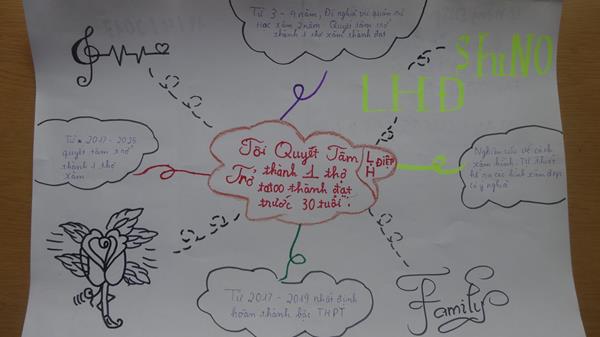 Từ 3 - 4 năm, Đi nghĩa vụ quân sự
Học xăm 2 năm Quyết tâm trở
thành 1 thợ xăm thành đạt
SHUNO
LHĐ
Từ 2017 - 2025
quyết tâm trở
thành 1 thợ
xăm
Tôi Quyết Tâm
Trở thành 1 thợ
tattoo thành đạt
trước 30 tuổi
LH ĐIỆP
Nghiên cứu về cách
xăm hình. Tự thiết
kế ra các hình xăm đẹp
có ý nghĩa
Từ 2017 - 2019 nhất định
hoàn thành bậc THPT
Family